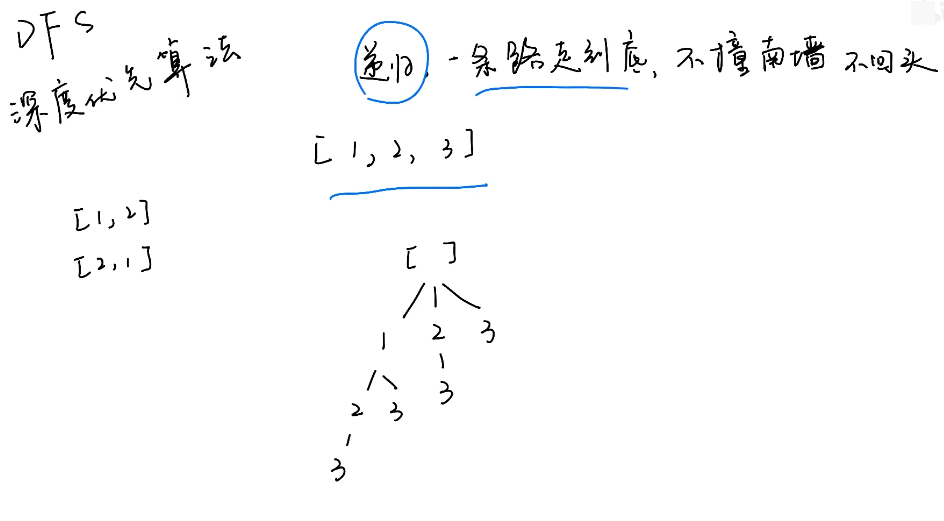 DFS
深度优先算法
递归，一条路走到底，不撞南墙 不回头
[1, 2, 3]
[1, 2]
[2, 1]
[ ]
1 2 3
2 3 3
3